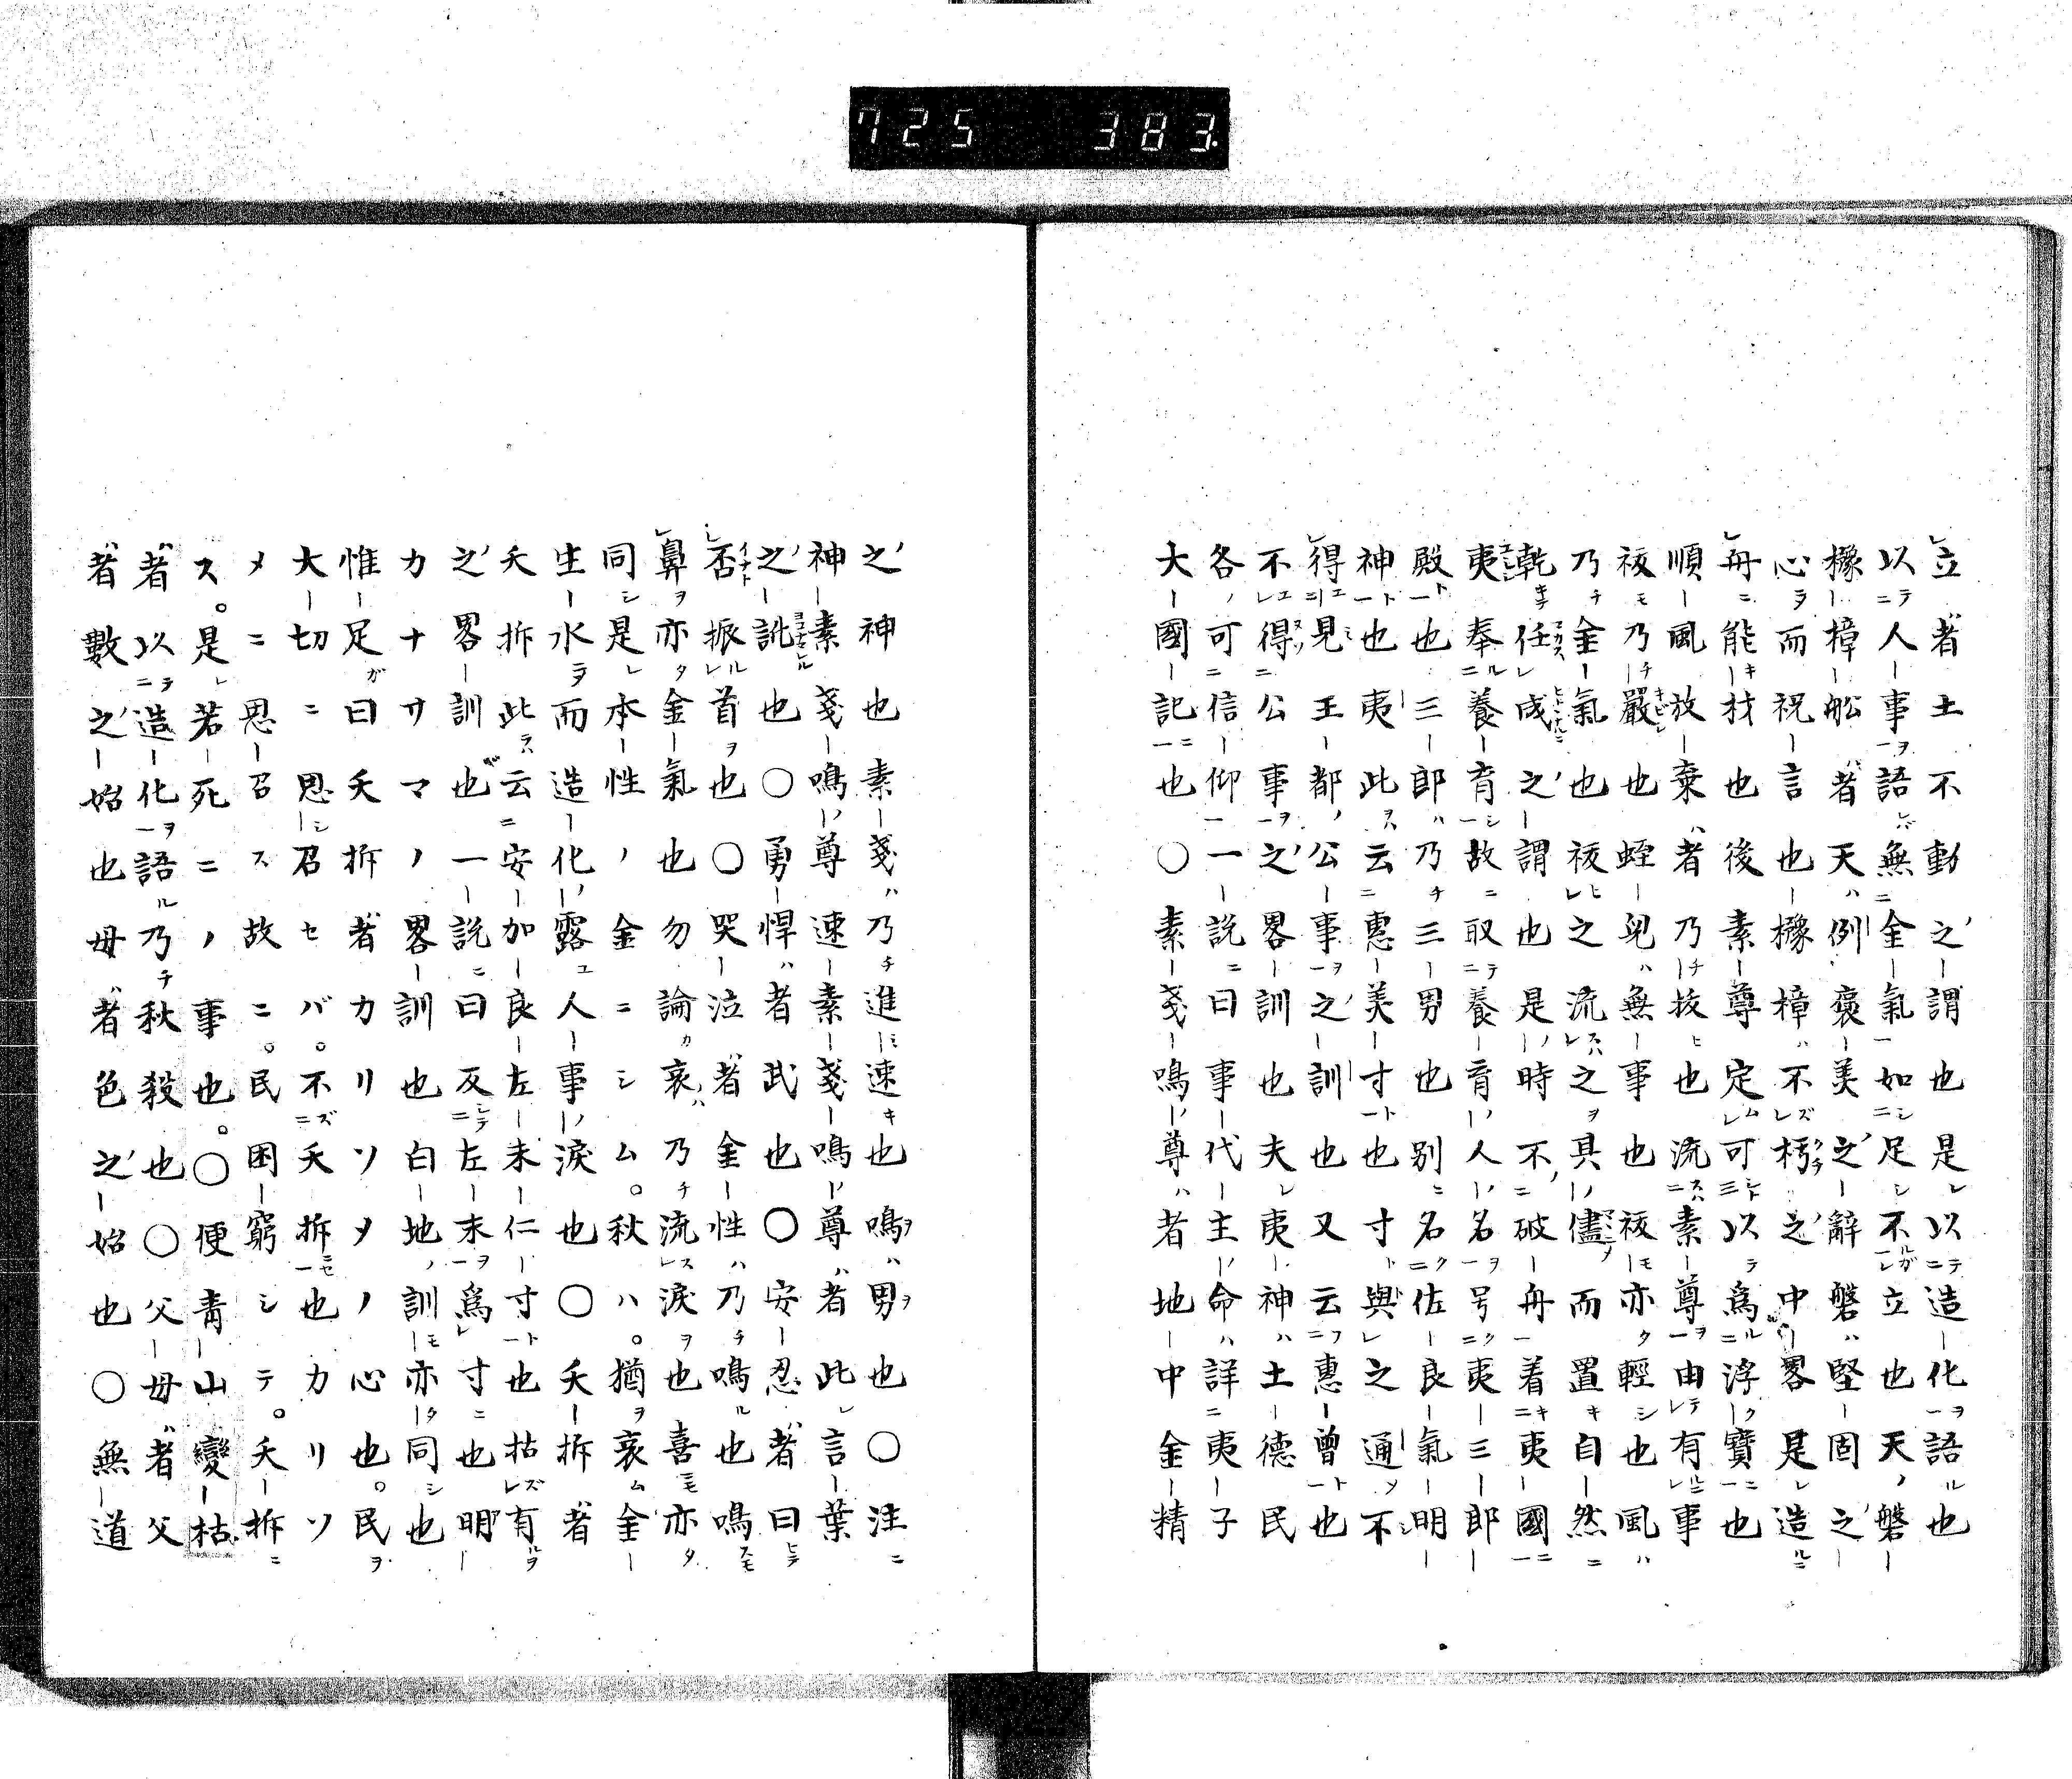 725 383
立者土不動之謂也是以造化語也
以人事語無金氣如足不立也天磐
櫲樟舩者天例褒美之辭磐堅固之
心而祝言也櫲樟不朽之中畧是造
舟能材也後素尊定可以爲浮寶也
順風放棄者乃抜也流素尊由有事
祓乃嚴也蛭兒無事也祓亦輕也風
乃金氣也祓之流之具儘而置自然
乾任成之謂也是時不破舟着夷國
夷奉養育故取養育人名号夷三郎
殿也三郎乃三男也別名佐良氣明
神也夷此云惠美寸也寸與之通不
得見王都公事之訓也又云惠曾也
不得公事之畧訓也夫夷神土德民
各可信仰一說曰事代主命詳夷子
大國記也〇素戔鳴尊者地中金精
之神也素戔乃進速也鳴男也〇注
神素戔鳴尊速素戔鳴尊者此言葉
之訛也〇勇悍者武也〇安忍者曰
否振首也〇哭泣者金性乃鳴也鳴
鼻亦金氣也勿論哀乃流淚也喜亦
同是本性ノ金ニシム。秋ハ。猶哀金
生水而造化露人事淚也〇夭拆者
夭拆此云安加良左末仁寸也拈有
之畧訓也一說曰反左末爲寸也明
カナサマノ畧訓也白地訓亦同也
惟足曰夭拆者カリソメノ心也。民
大切ニ思召セバ。不夭拆也カリソ
メニ思召ス故ニ。民困窮シテ。夭拆
ス。是若死ニノ事也。〇便青山變枯
者以造化語乃秋殺也〇父母者父
者數之始也母者色之始也〇無道